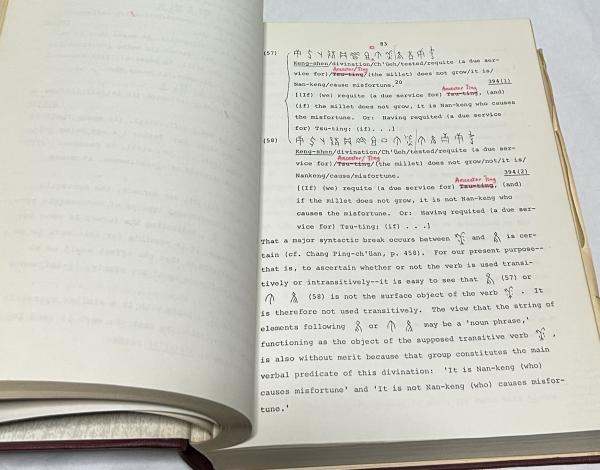 83
(57)
Keng-shen/divination/Ch'üeh/tested/requite (a due ser-
Ancestor Ting
vice for)/Tsu-ting/(the millet) does not grow/it is/
Nan-keng/cause misfortune.20
394(1)
Ancestor Ting
[(If) (we) requite (a due service for) Tsu-ting, (and)
(if) the millet does not grow, it is Nan-keng who causes
the misfortune. Or: Having requited (a due service
for) Tsu-ting; (if). . .]
(58)
Keng-shen/divination/Ch'üeh/tested/requite (a due ser-
Ancestor/Ting
vice for)/Tsu-ting/(the millet) does not grow/not/it is/
Nankeng/cause/misfortune.
394(2)
Ancestor Ting
[(If) (we) requite (a due service for) Tsu-ting, (and)
if the millet does not grow, it is not Nan-keng who
causes the misfortune. Or: Having requited (a due ser-
vice for) Tsu-ting; (if) . . .]
That a major syntactic break occurs between and is cer-
tain (cf. Chang Ping-ch'üan, p. 458). For our present purpose--
that is, to ascertain whether or not the verb is used transi-
tively or intransitively--it is easy to see that (57) or
(58) is not the surface object of the verb . It
is therefore not used transitively. The view that the string of
elements following or may be a 'noun phrase,'
functioning as the object of the supposed transitive verb ,
is also without merit because that group constitutes the main
verbal predicate of this divination: 'It is Nan-keng (who)
causes misfortune' and 'It is not Nan-keng (who) causes misfor-
tune.'